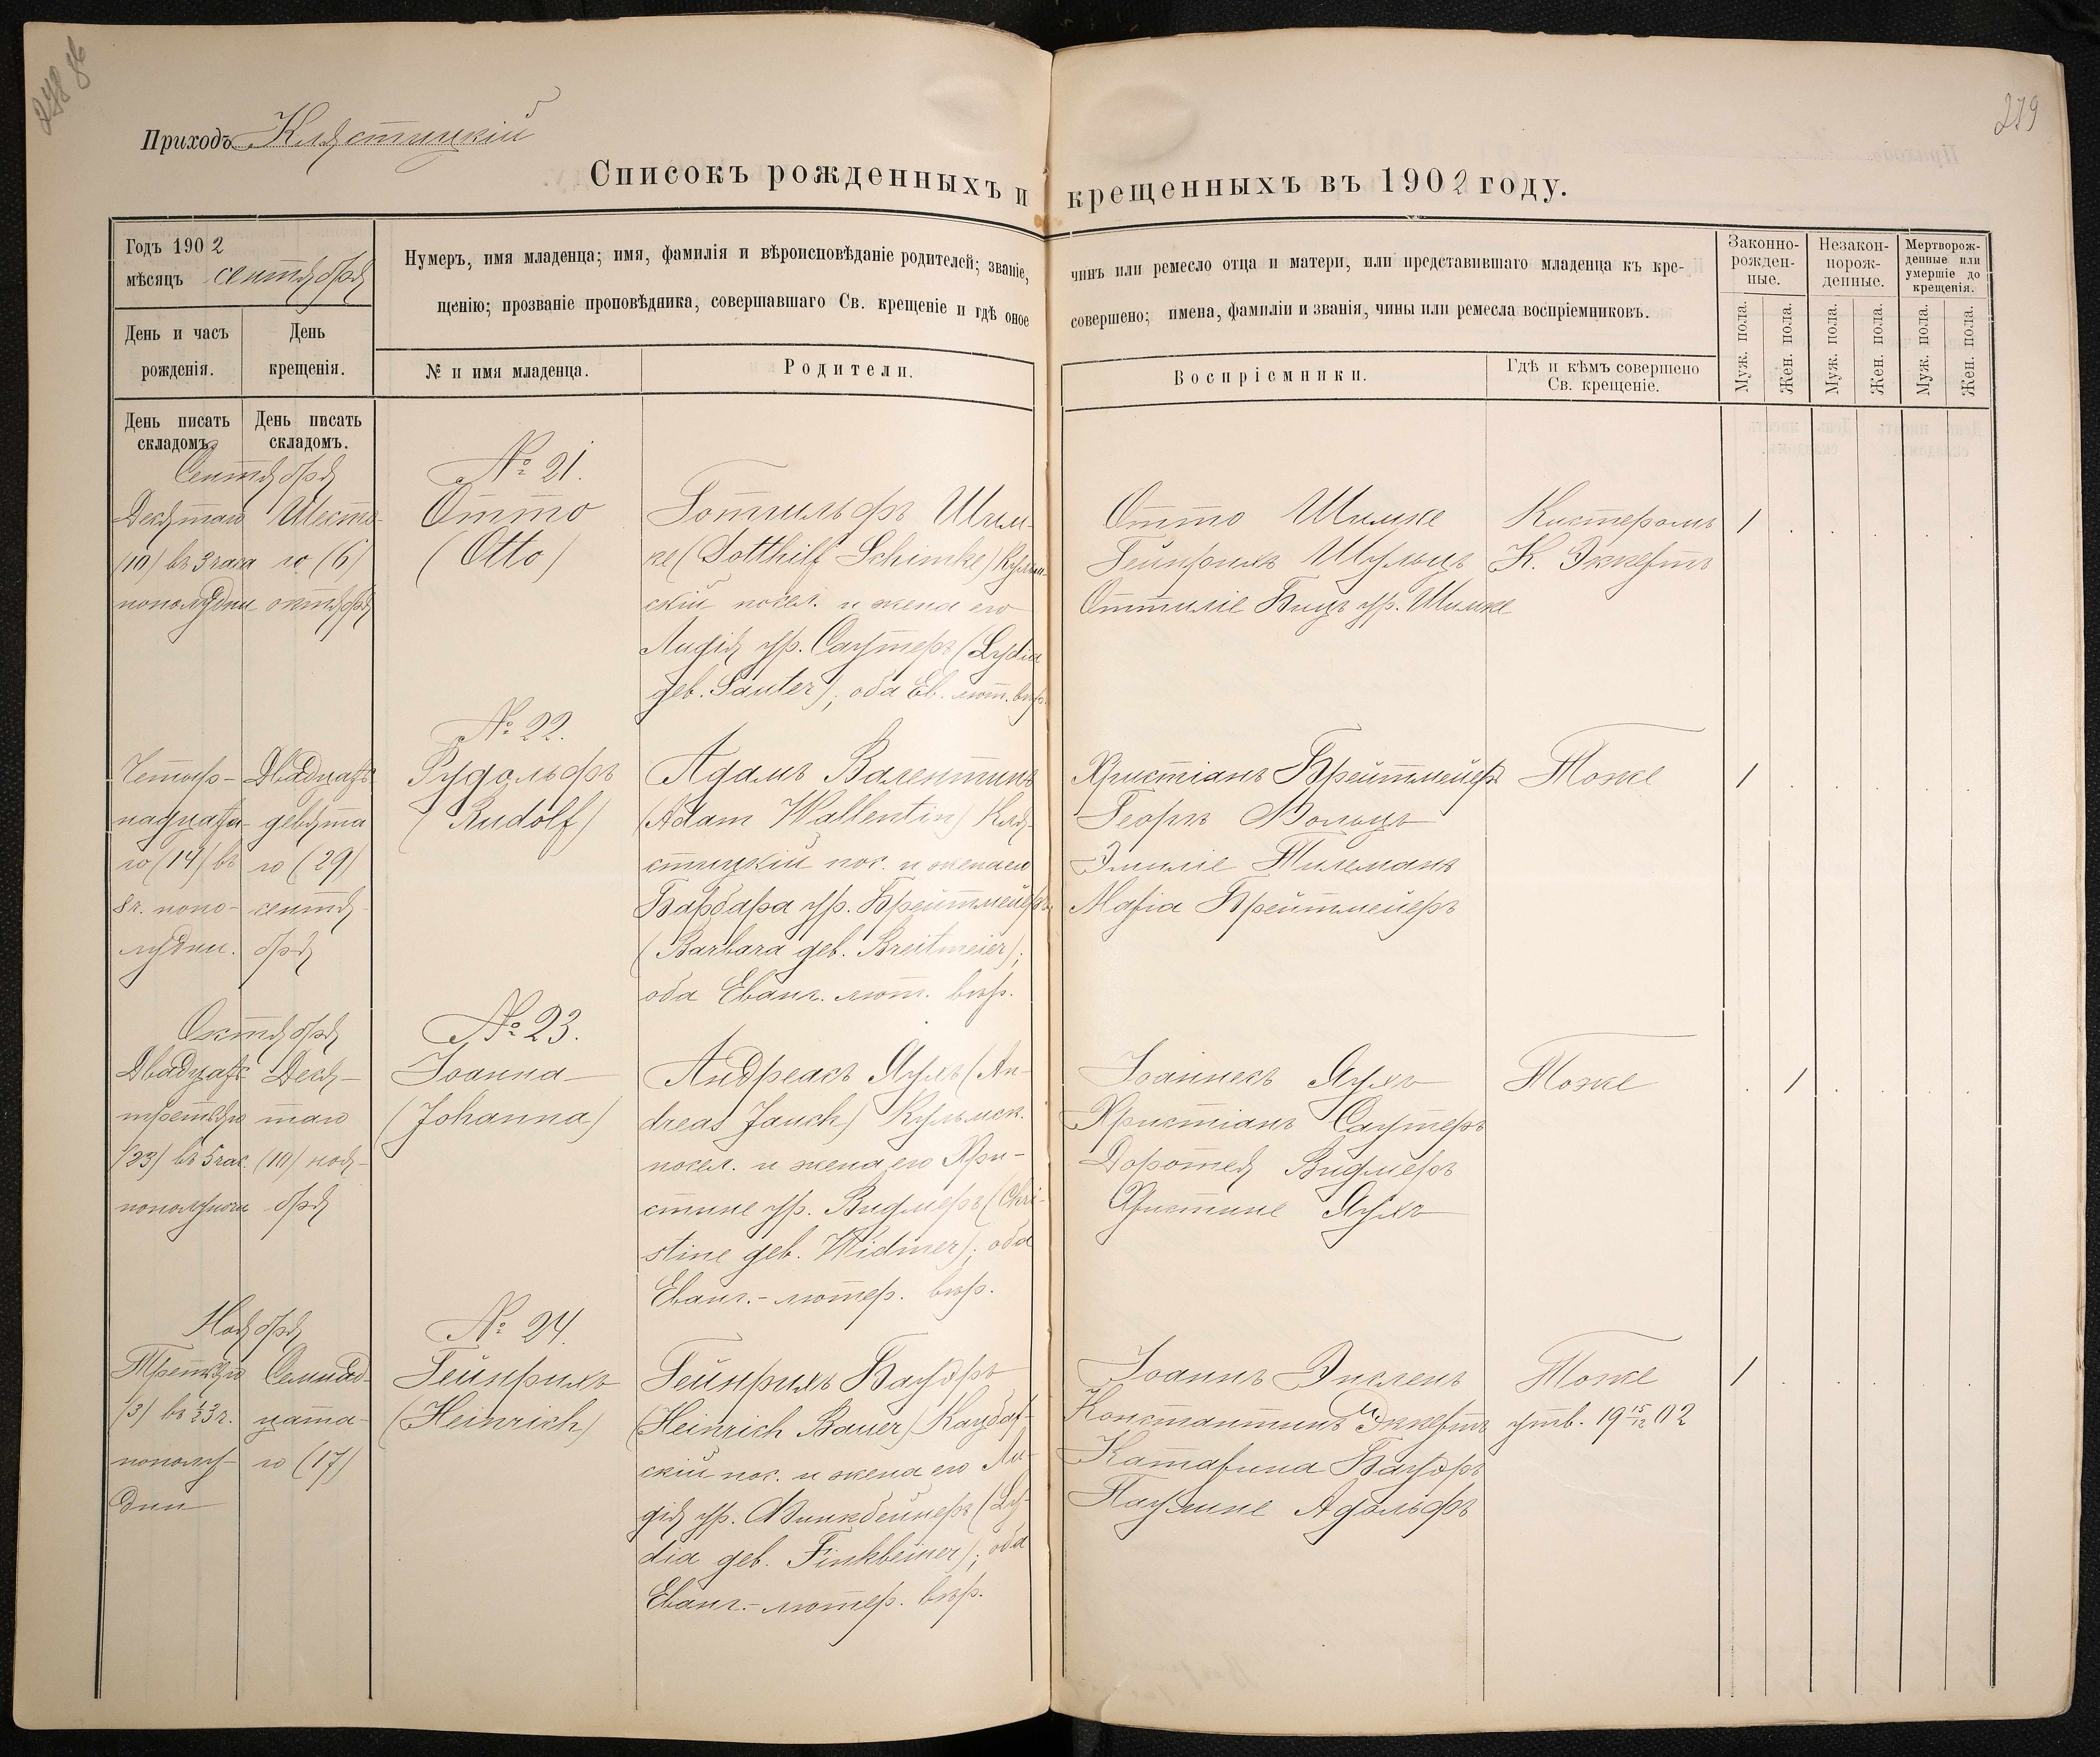 279
Приходъ Клястицкій
Списокъ рожденныхъ и крещенныхъ въ 1902 году.
Годъ 1902
мѣсяцъ сентября
День и часъ рожденія.
День крещенія.
Нумеръ, имя младенца; имя, фамилія и вѣроисповѣданіе родителей; званіе, чинъ или ремесло отца и матери, или представившаго младенца къ кре-
щенію; прозваніе проповѣдника, совершавшаго Св. крещеніе и гдѣ оное совершено; имена, фамиліи и званія, чины или ремесла воспріемниковъ.
№ и имя младенца.
Родители.
Воспріемники.
Гдѣ и кѣмъ совершено
Св. крещеніе.
Законно-
рожден-
ные.
Незакон-
норож-
денные.
Мертворож-
денные или
умершіе до
крещенія.
Муж. пола.
Жен. пола.
Муж. пола.
Жен. пола.
Муж. пола.
Жен. пола.
День писать
складомъ.
День писать
складомъ.
Сентября
Десятаго
(10) въ 3 часа
пополудни
Шесто-
го (6)
октября
№ 21.
Отто
(Otto)
Готтильфъ Шим-
ке (Gotthilf Schimke) Кульм-
скій посел. и жена его
Лидія ур. Саутеръ (Lydia
geb. Sauter); оба Ев. лют. вѣр.
Отто Шимке
Гейнрихъ Шульцъ
Оттиліе Бицъ ур. Шимке
Кистеромъ
К. Эккертъ
1
Четыр-
надцата-
го (14) въ
8 ч. попо-
лудни.
Двадцать
девята
го (29)
сентя-
бря
№ 22.
Рудольфъ
(Rudolf)
Адамъ Валентинъ
(Adam Wallentin) Кля-
стицкій пос. и жена его
Барбара ур. Брейтмейеръ
(Barbara geb. Breitmeier);
оба Еванг. лют. вѣр.
Христіанъ Брейтмейеръ
Георгъ Вольцъ
Эмиліе Тилеманъ
Марія Брейтмейеръ
Тоже
1
Октября
Двадцать
третьяго
(23) въ 5 час.
пополуночи
Деся-
таго
(10) ноя-
бря
№ 23.
Іоанна
(Johanna)
Андреасъ Яухъ (An-
dreas Jauch) Кульмск.
посел. и жена его Хри-
стине ур. Видмеръ (Chri-
stine geb. Widmer); оба
Еванг.-лютер. вѣр.
Іоаннесъ Яухъ
Христіанъ Саутеръ
Доротея Видмеръ
Христине Яухъ
Тоже
1
Ноября
Третьяго
(3) въ ½3 ч.
пополу-
дни
Семнад-
цата-
го (17)
№ 24.
Гейнрихъ
(Heinrich)
Гейнрихъ Бауэръ
(Heinrich Bauer) Каубаг-
скій пос. и жена его Ли-
дія ур. Финкбейнеръ (Ly-
dia geb. Finkbeiner); оба
Еванг.-лютер. вѣр.
Іоаннъ Энслень
Константинъ Эккертъ
Катарина Бауэръ
Паулине Адольфъ
Тоже
утв. 19 15/12 02
1